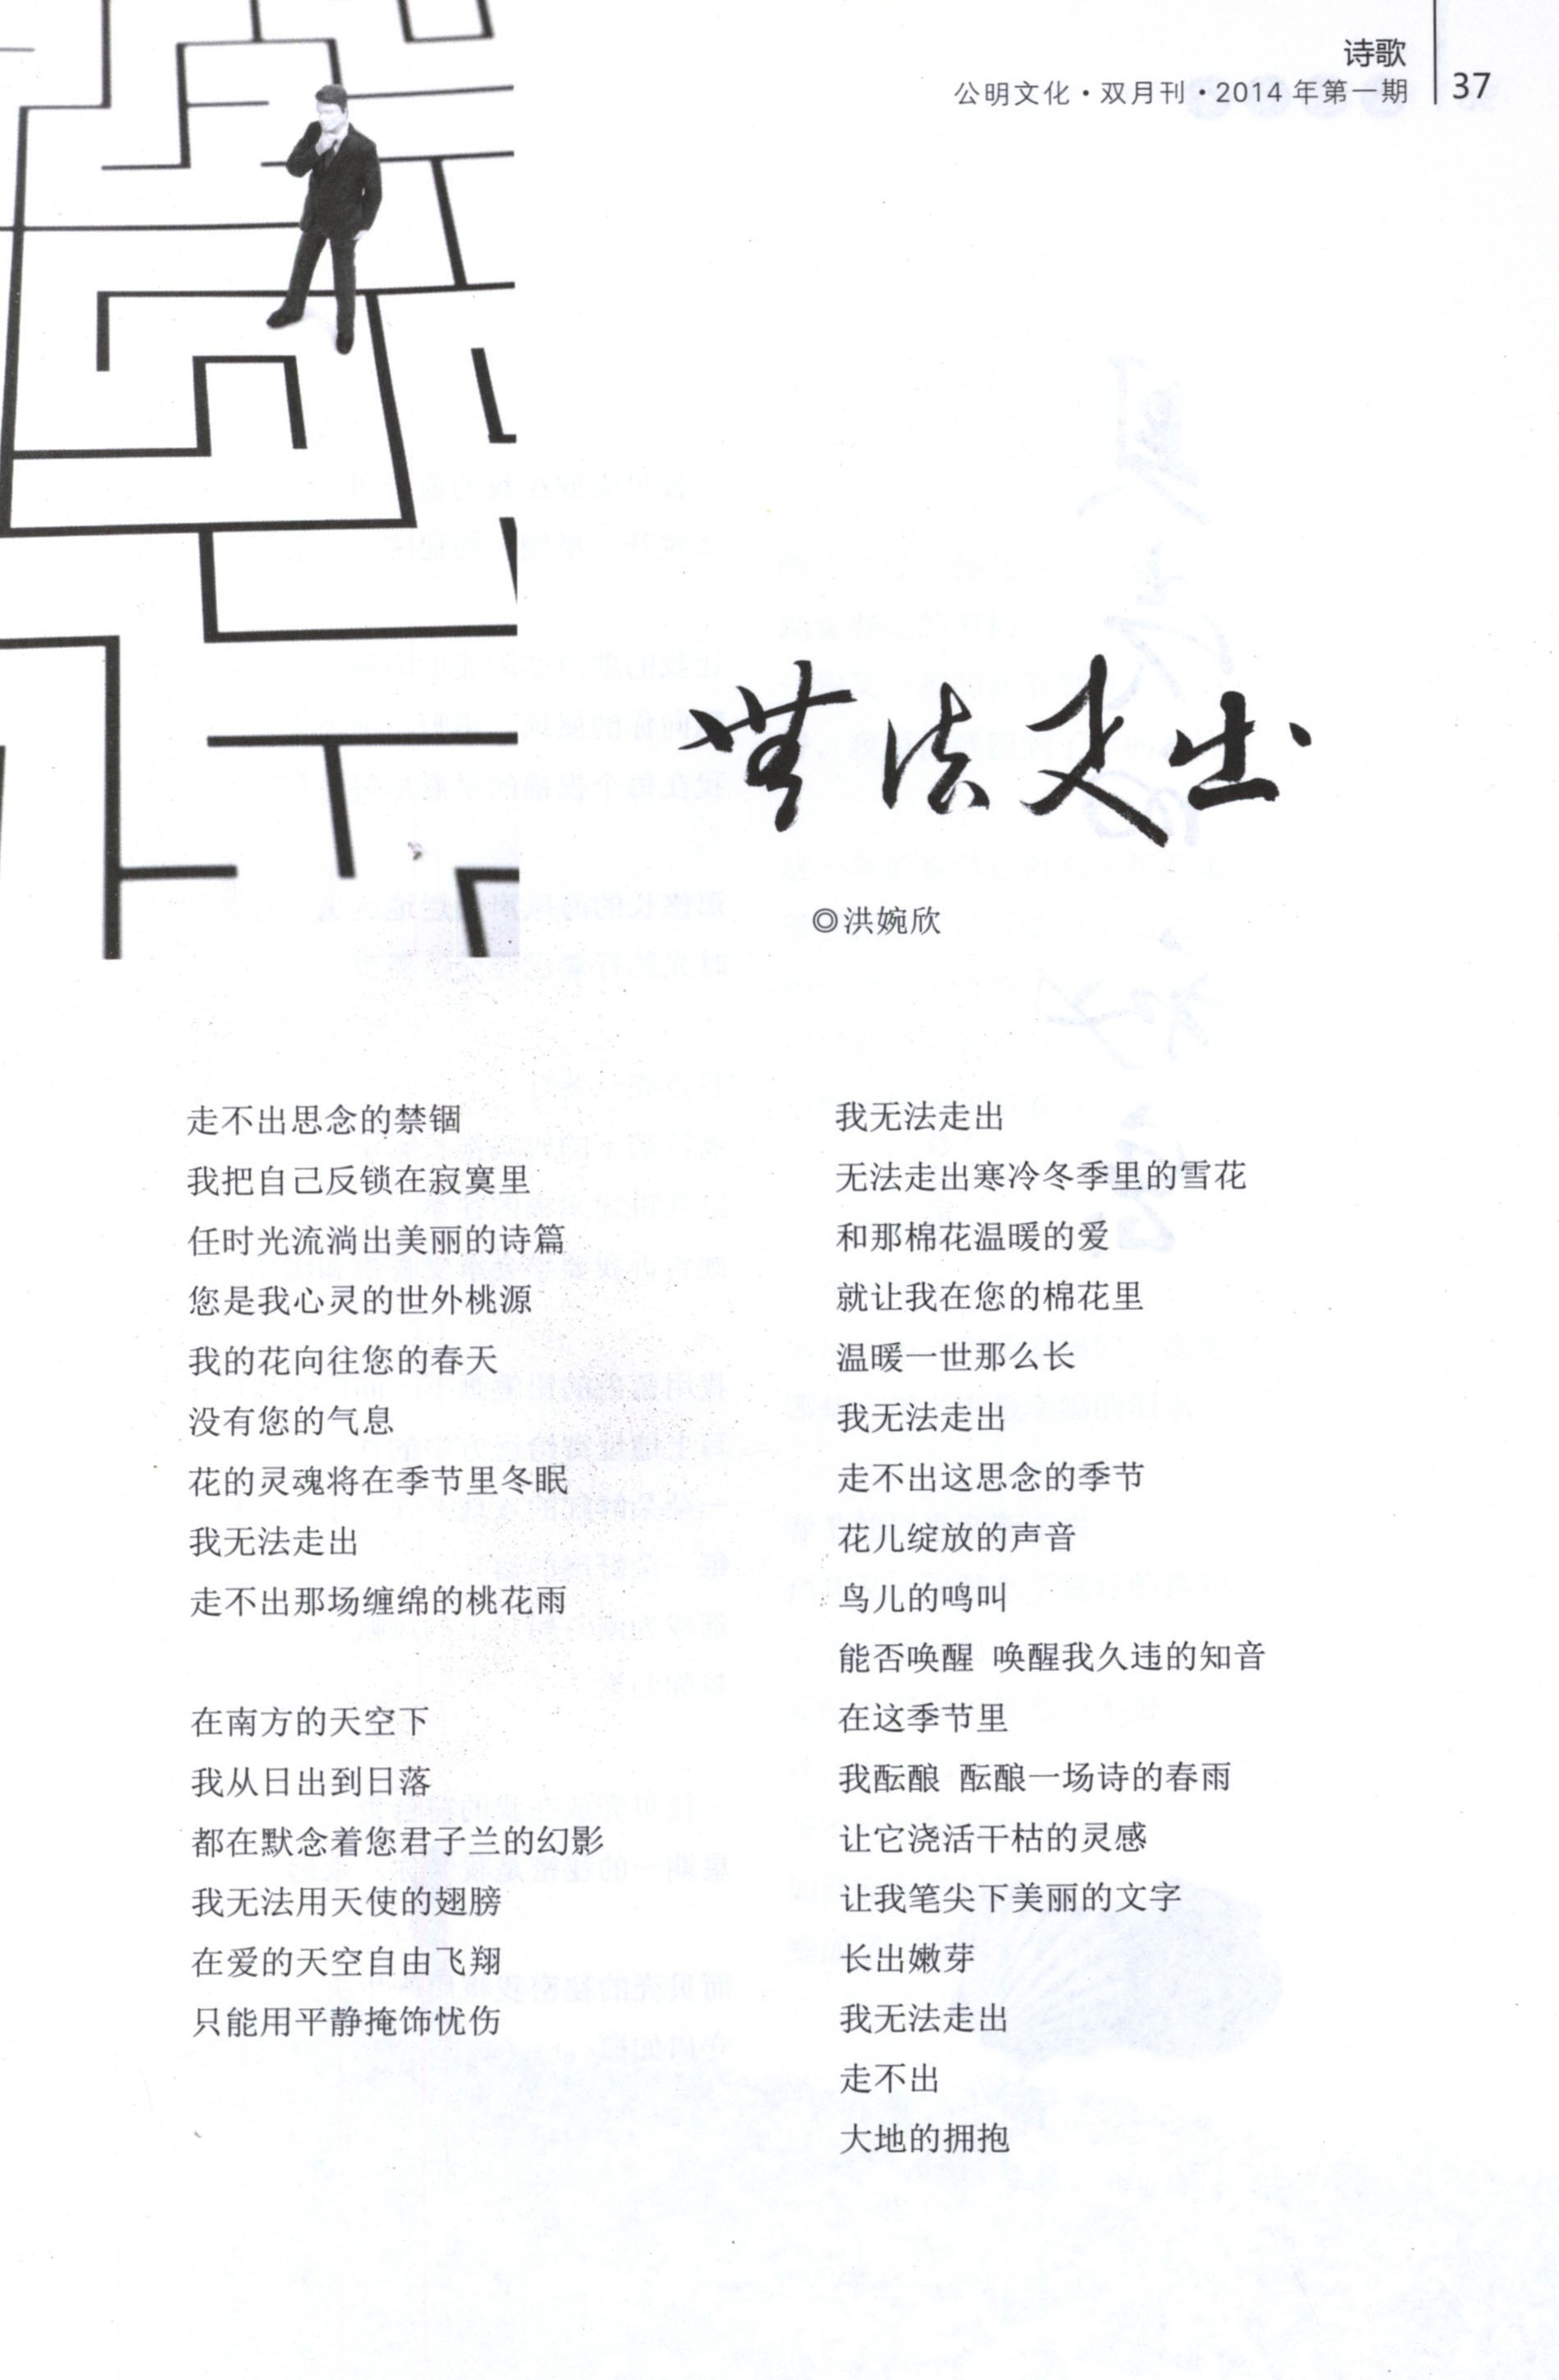 诗歌
公明文化·双月刊·2014年第一期
37
無法走出
◎洪婉欣
走不出思念的禁锢
我把自己反锁在寂寞里
任时光流淌出美丽的诗篇
您是我心灵的世外桃源
我的花向往您的春天
没有您的气息
花的灵魂将在季节里冬眠
我无法走出
走不出那场缠绵的桃花雨
在南方的天空下
我从日出到日落
都在默念着您君子兰的幻影
我无法用天使的翅膀
在爱的天空自由飞翔
只能用平静掩饰忧伤
我无法走出
无法走出寒冷冬季里的雪花
和那棉花温暖的爱
就让我在您的棉花里
温暖一世那么长
我无法走出
走不出这思念的季节
花儿绽放的声音
鸟儿的鸣叫
能否唤醒 唤醒我久违的知音
在这季节里
我酝酿 酝酿一场诗的春雨
让它浇活干枯的灵感
让我笔尖下美丽的文字
长出嫩芽
我无法走出
走不出
大地的拥抱